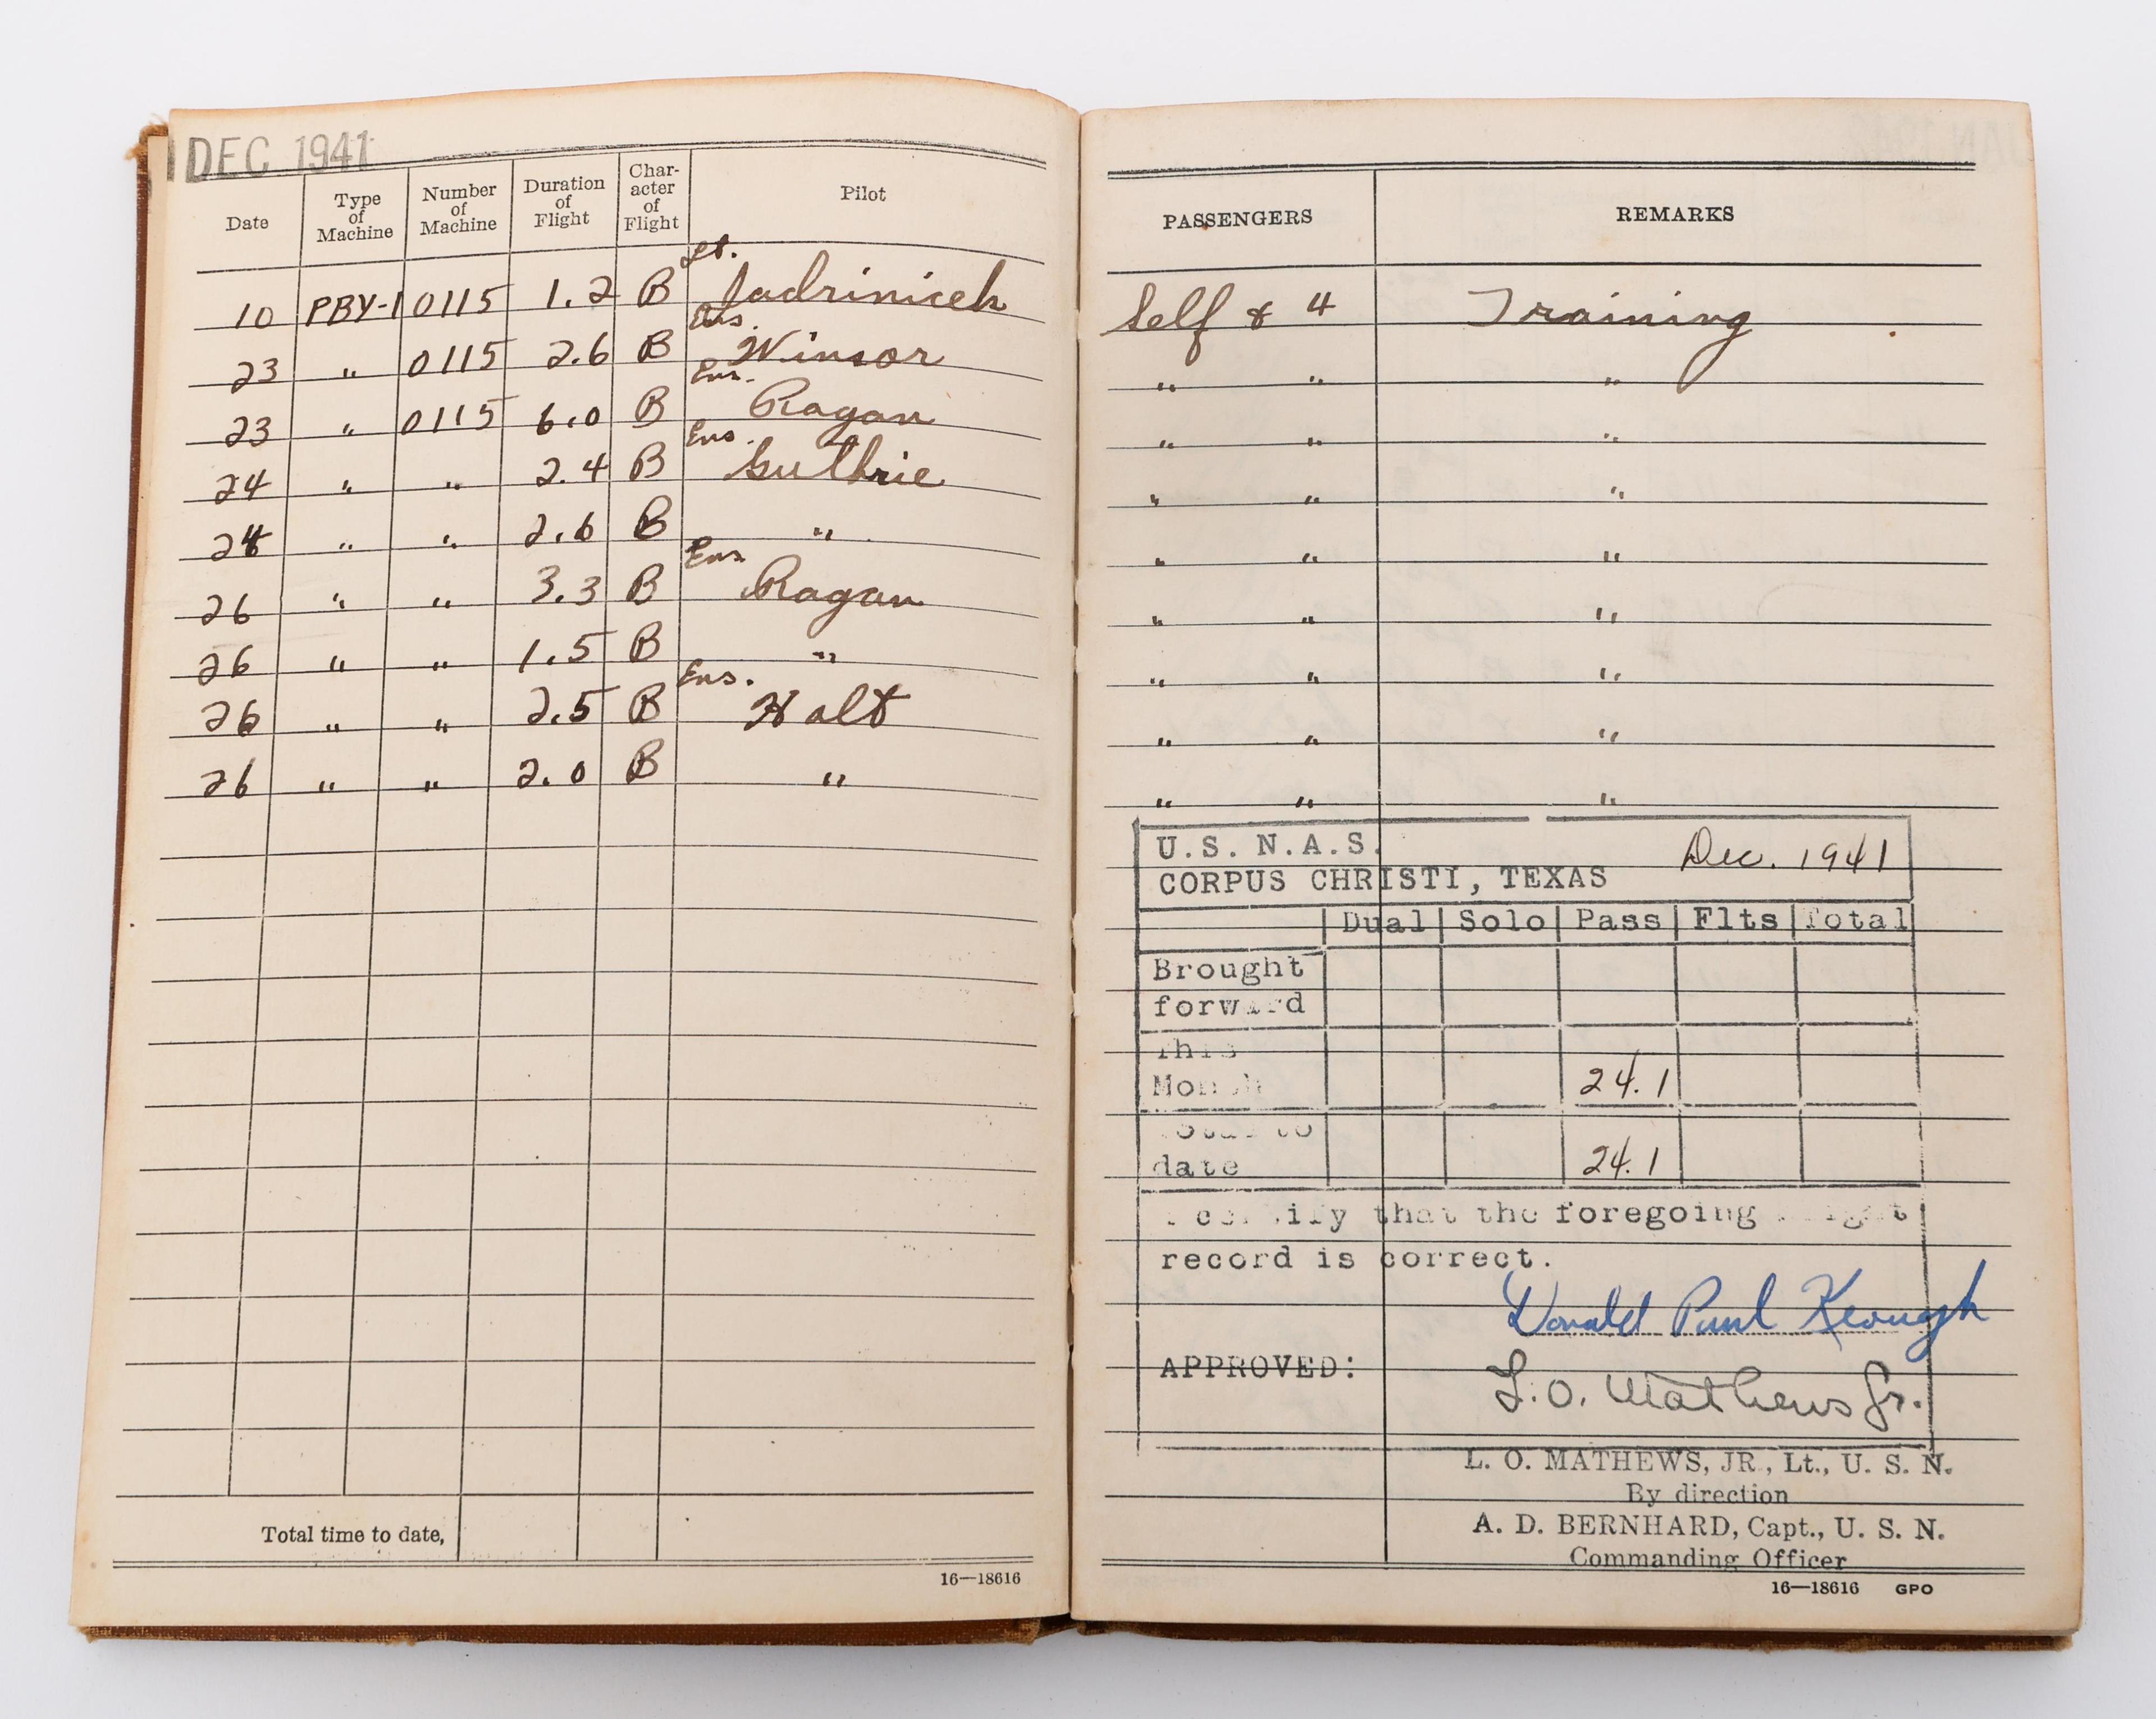 DEC 1941
Date
Type of Machine
Number of Machine
Duration of Flight
Char-acter of Flight
Pilot
Lt.
10 PBY-1 0115 1.2 B Jadrinicek
Ens.
23 " 0115 2.6 B Winsor
Ens.
23 " 0115 6.0 B Ragan
Ens.
24 " " 2.4 B Guthrie
24 " " 2.6 B "
Ens
26 " " 3.3 B Ragan
26 " " 1.5 B "
Ens.
26 " " 2.5 B Halt
26 " " 2.0 B "
Total time to date,
16—18616
PASSENGERS REMARKS
Self & 4 Training
" " "
" " "
" " "
" " "
" " "
" " "
" " "
" " "
U.S. N.A.S. Dec. 1941
CORPUS CHRISTI, TEXAS
Dual Solo Pass Flts Total
Brought
forward
This
Month 24.1
Total to
date 24.1
I certify that the foregoing flight
record is correct.
Donald Paul Keough
APPROVED:
L. O. Mathews Jr.
L. O. MATHEWS, JR., Lt., U. S. N.
By direction
A. D. BERNHARD, Capt., U. S. N.
Commanding Officer
16—18616 GPO